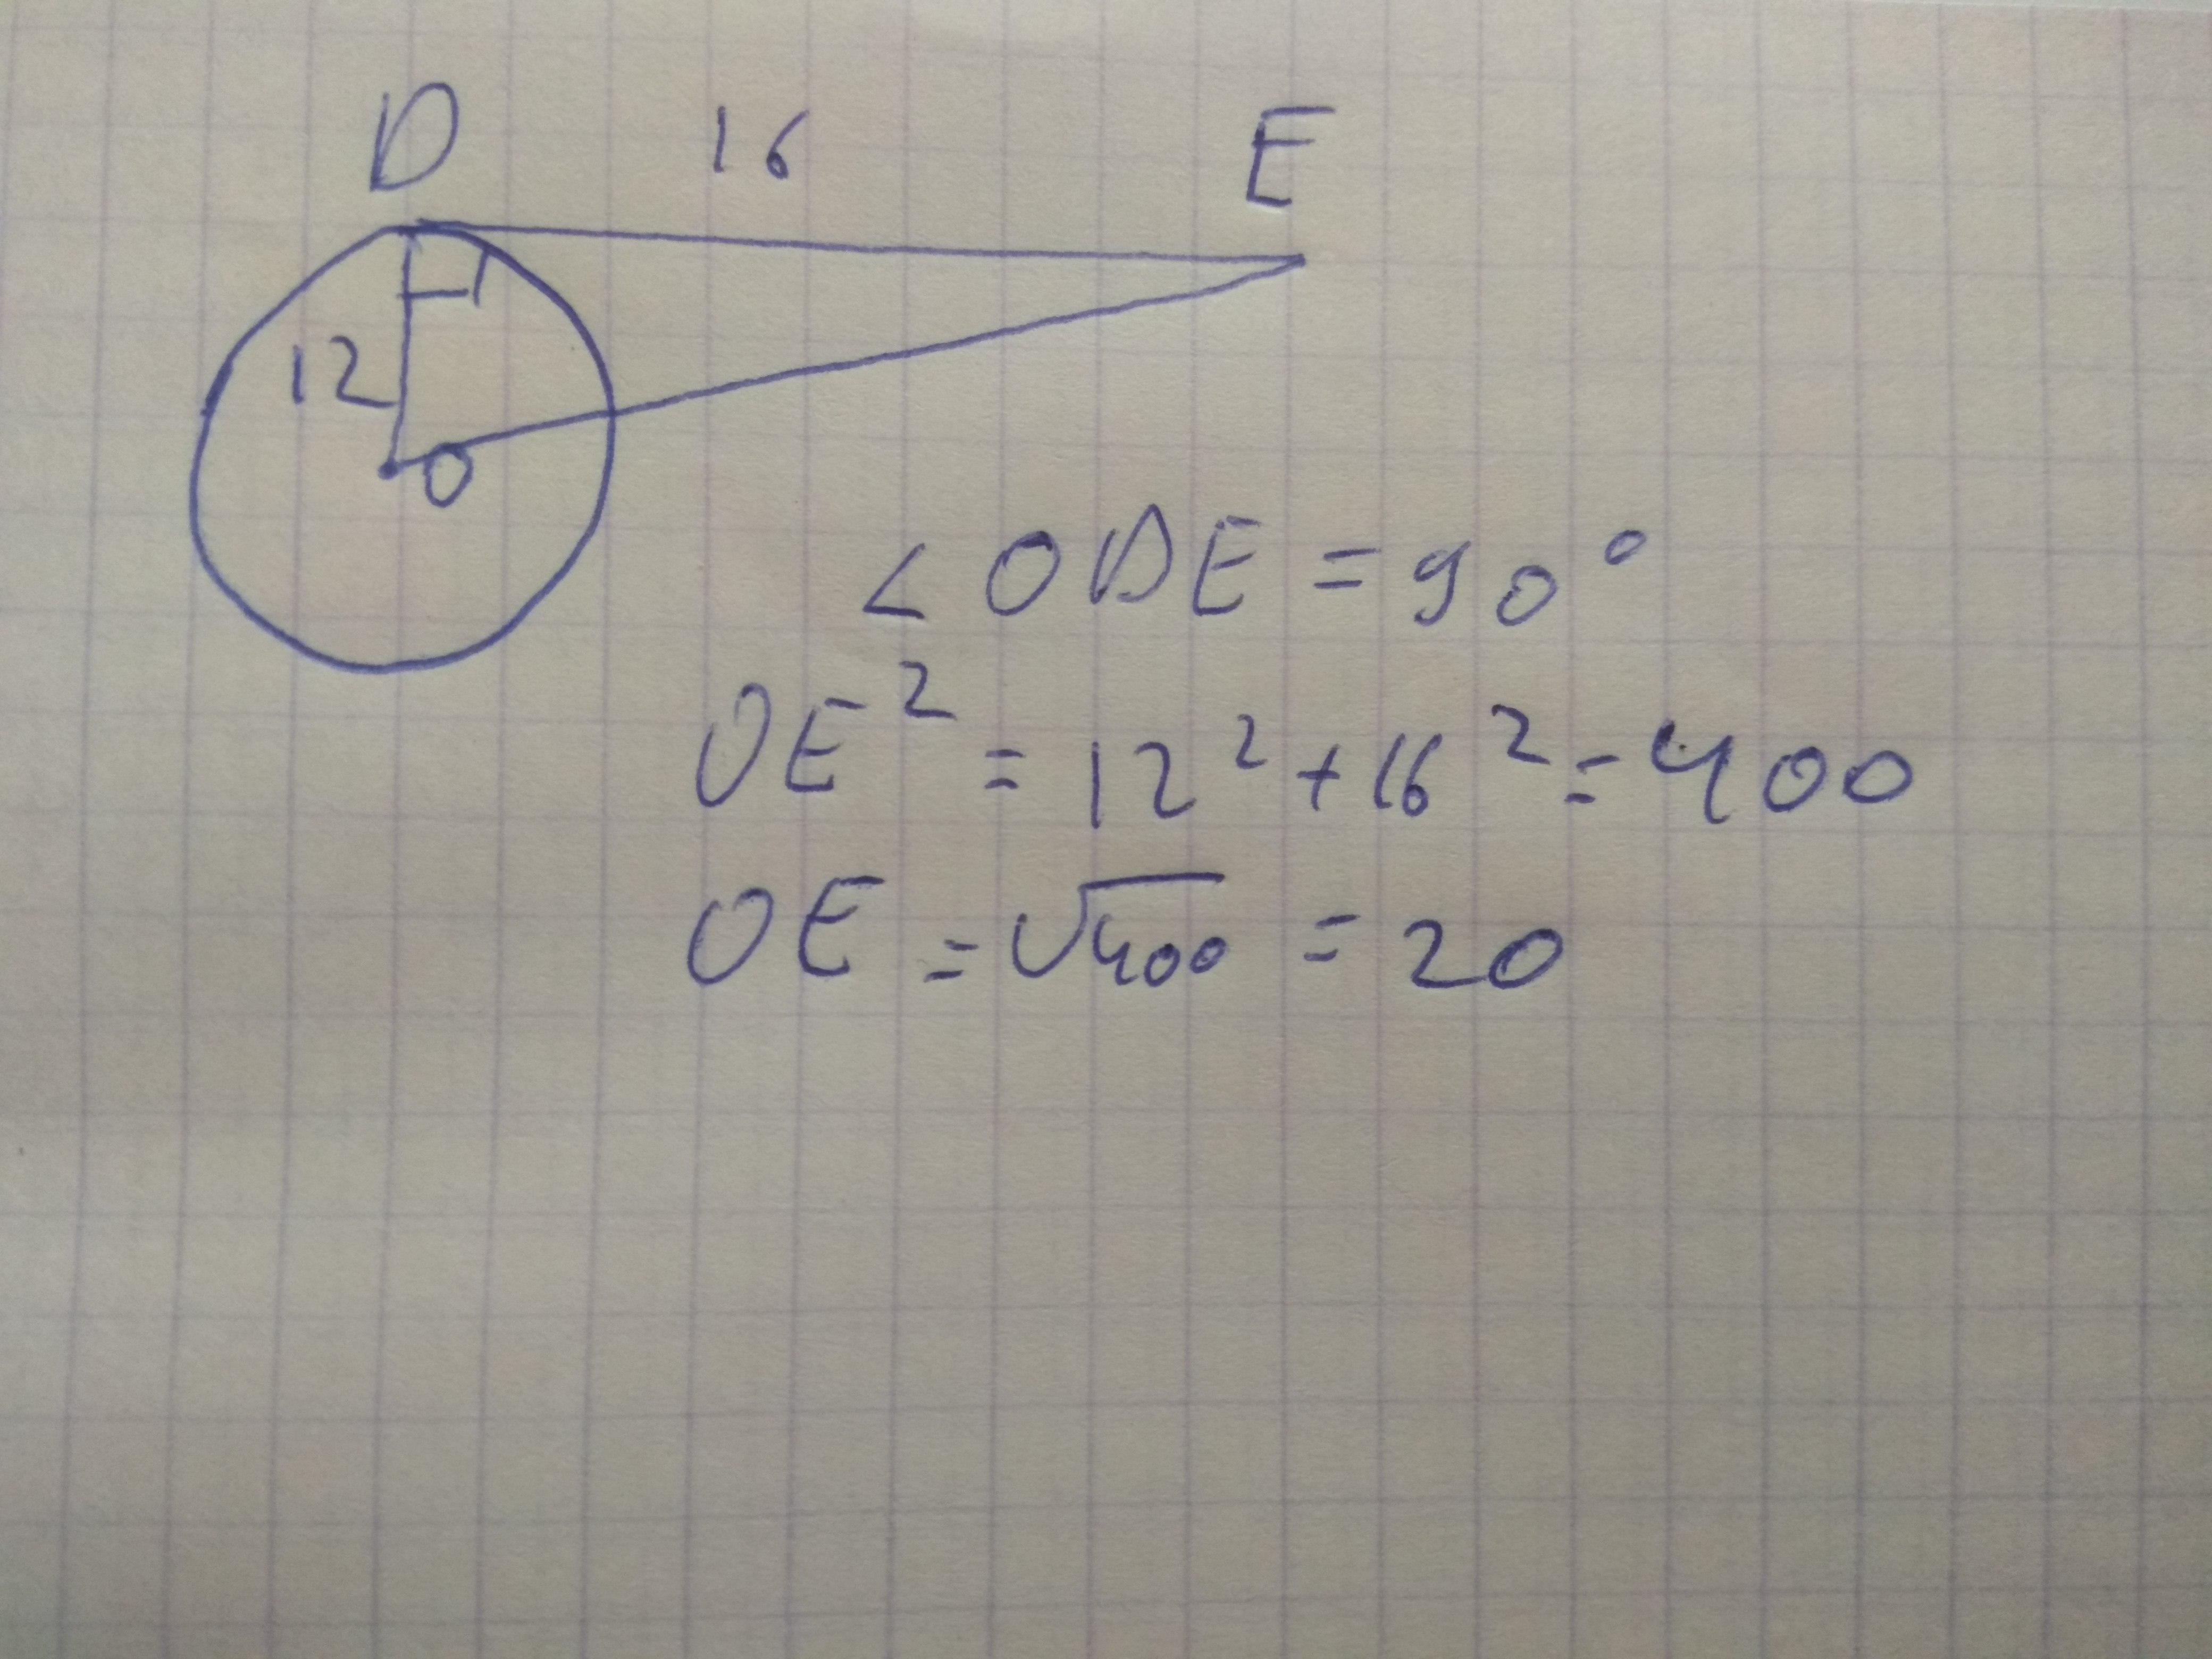 D 16 E
12
O
∠ODE = 90°
OE² = 12² + 16² = 400
OE = √400 = 20